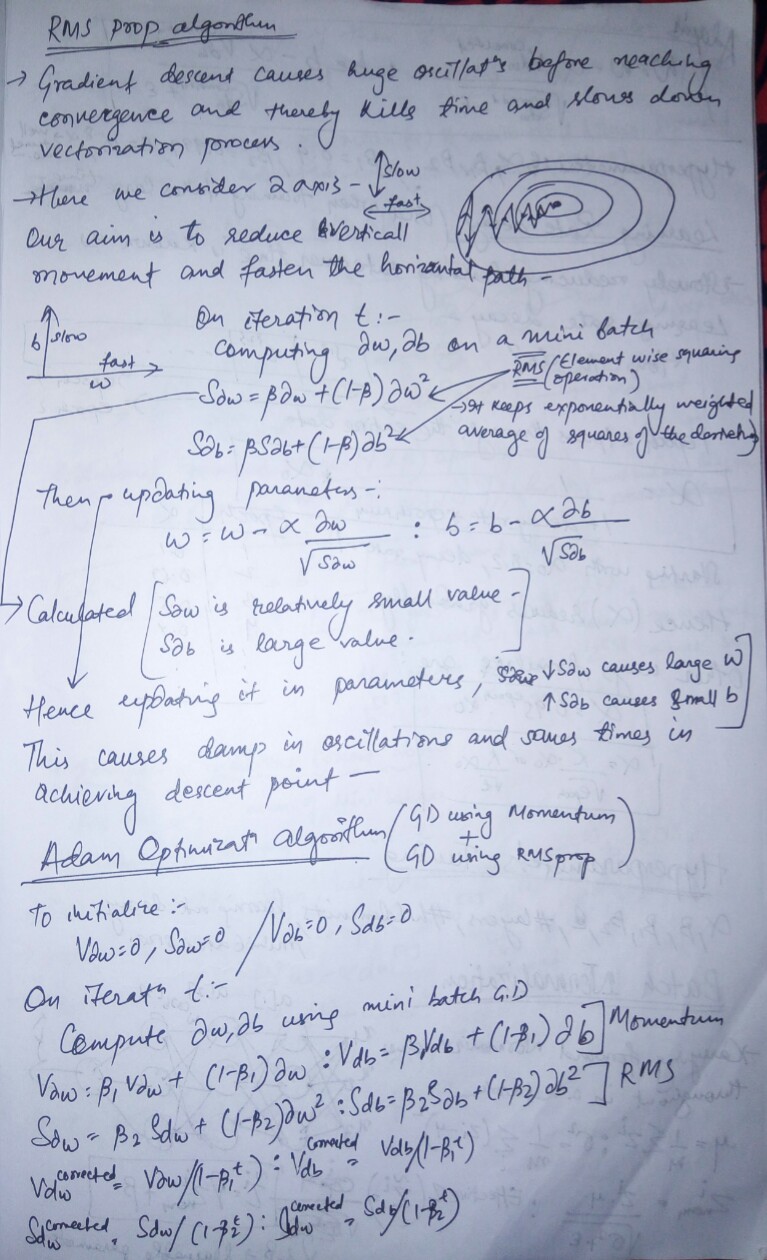 RMS prop algorithm
→ Gradient descent causes huge oscillatⁿs before reaching
convergence and thereby kills time and slows down
vectorization process.
→ Here we consider 2 axis - slow
fast
Our aim is to reduce vertical
movement and fasten the horizontal path -
b slow
fast
w
On iteration t :-
computing ∂w, ∂b on a mini batch
RMS (Element wise squaring
operation)
S∂w = β∂w + (1-β) ∂w²
→ It keeps exponentially weighted
average of squares of the derivativ)
S∂b = βS∂b + (1-β) ∂b²
Then updating parameters -:
w = w - α ∂w/√S∂w : b = b - α∂b/√S∂b
→ Calculated [S∂w is relatively small value -
S∂b is large value. ]
Hence updating it in parameters, ↓S∂w causes large w
↑S∂b causes small b]
This causes damp in oscillations and saves times in
achieving descent point —
Adam Optimizatⁿ algorithm (GD using Momentum
+
GD using RMSprop)
To initialize :-
V∂w=0, S∂w=0 / V∂b=0, Sdb=0
On iteratⁿ t :-
Compute ∂w, ∂b using mini batch G.D
V∂w = β₁V∂w + (1-β₁) ∂w : Vdb = βVdb + (1-β₁) ∂b] Momentum
S∂w = β₂ Sdw + (1-β₂)∂w² : Sdb = β₂S∂b + (1-β₂) ∂b² ] RMS
Vdw^corrected = V∂w/(1-β₁ᵗ) : Vdb^corrected = Vdb/(1-β₁ᵗ)
Sdw^corrected = Sdw/(1-β₂ᵗ) : Sdw^corrected = Sdb/(1-β₂ᵗ)